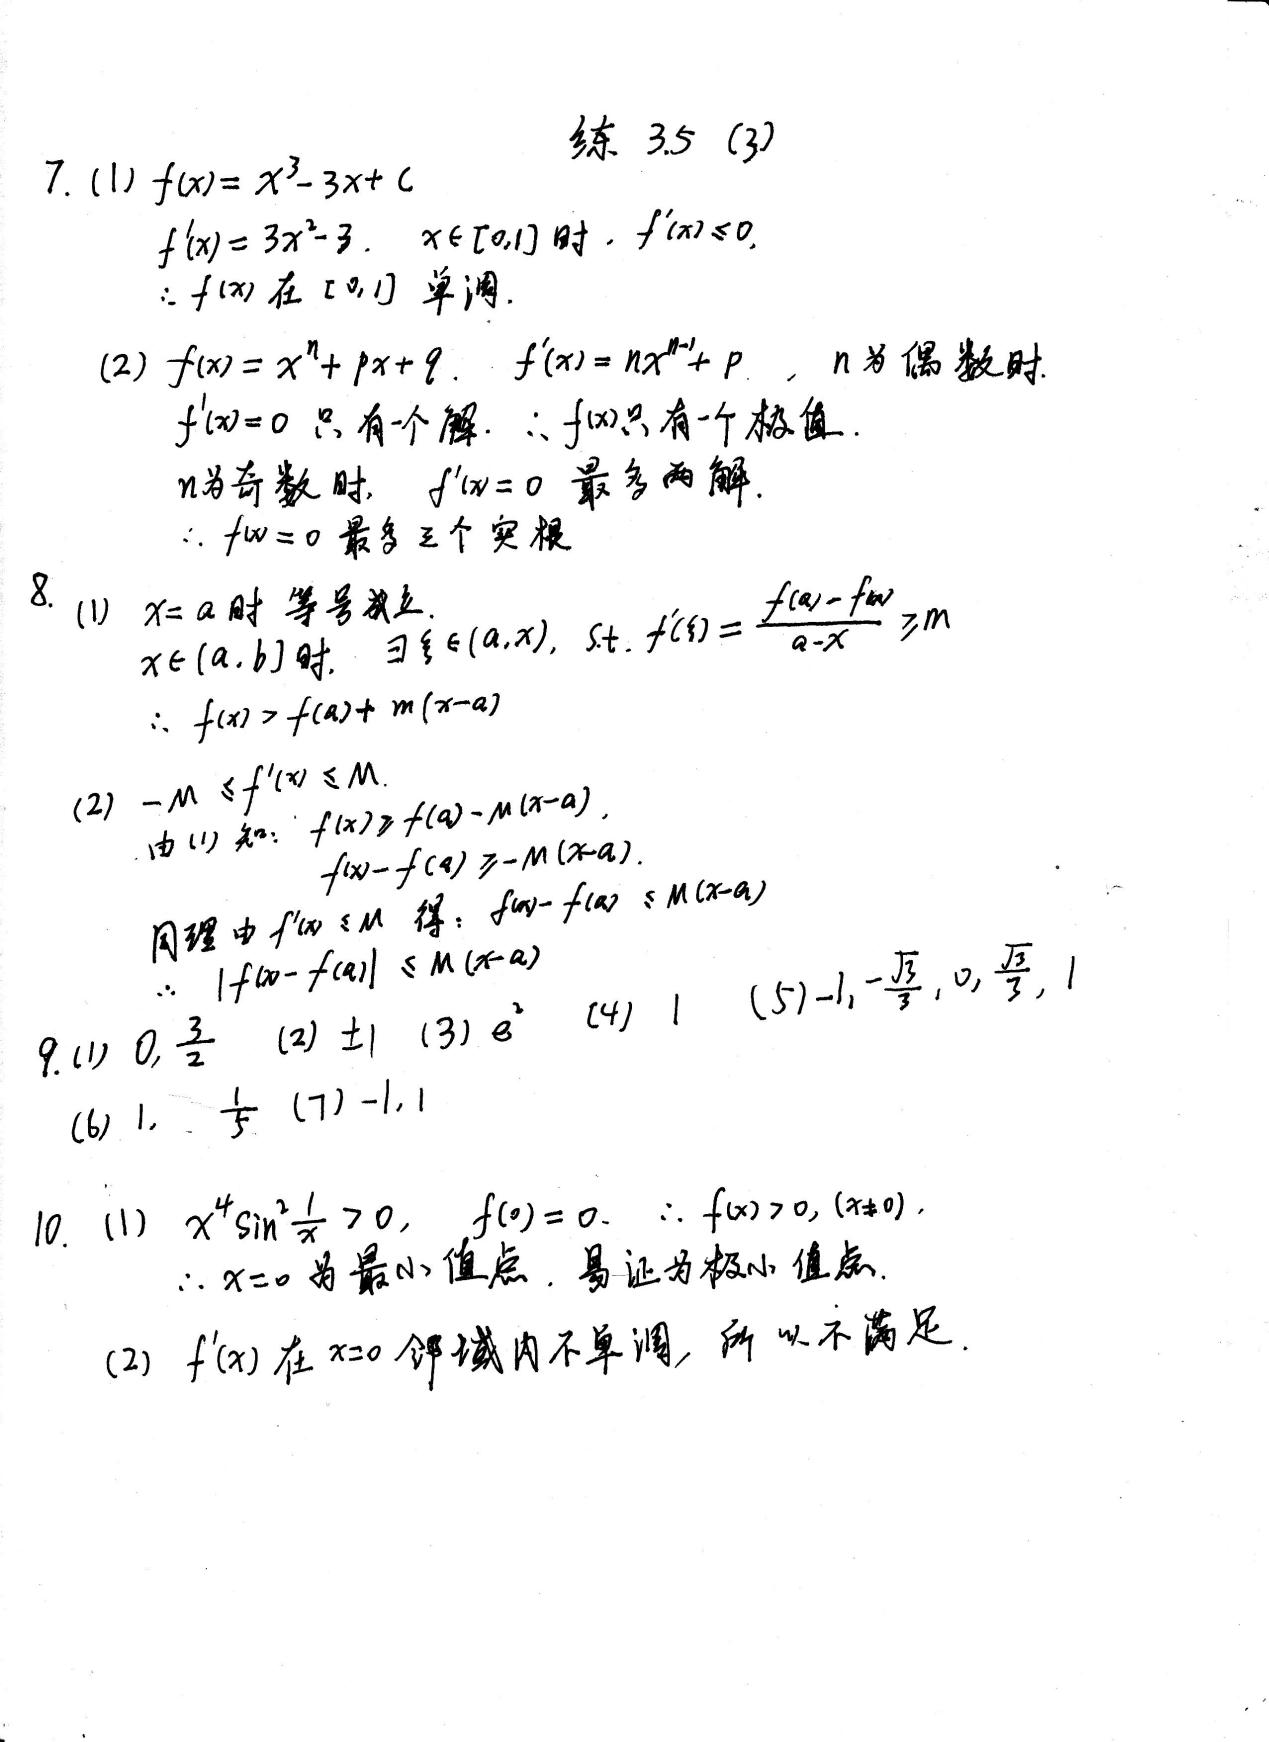 练 3.5 (3)
7. (1) f(x) = x³ - 3x + c
f'(x) = 3x² - 3. x∈[0,1] 时. f'(x) ≤ 0.
∴ f(x) 在 [0,1] 单调.
(2) f(x) = xⁿ + px + q. f'(x) = nxⁿ⁻¹ + p. , n 为偶数时.
f'(x) = 0 只有一个解. ∴ f(x)只有一个极值.
n为奇数时. f'(x) = 0 最多两解.
∴ f(x) = 0 最多三个实根
8. (1) x = a 时 等号成立.
x∈(a,b] 时. ∃ξ∈(a,x), s.t. f'(ξ) = (f(a) - f(x))/(a-x) ≥ m
∴ f(x) > f(a) + m(x-a)
(2) -M ≤ f'(x) ≤ M.
由(1)知: f(x) ≥ f(a) - M(x-a),
f(x) - f(a) ≥ -M(x-a).
同理由 f'(x) ≤ M 得: f(x) - f(a) ≤ M(x-a)
∴ |f(x) - f(a)| ≤ M(x-a)
9. (1) 0, 3/2 (2) ±1 (3) e² (4) 1 (5) -1, -√3/3, 0, √3/3, 1
(6) 1, 1/5 (7) -1, 1
10. (1) x⁴sin² 1/x > 0, f(0) = 0. ∴ f(x) > 0, (x≠0).
∴ x=0 为最小值点. 易证为极小值点.
(2) f'(x) 在 x=0 邻域内不单调, 所以不满足.